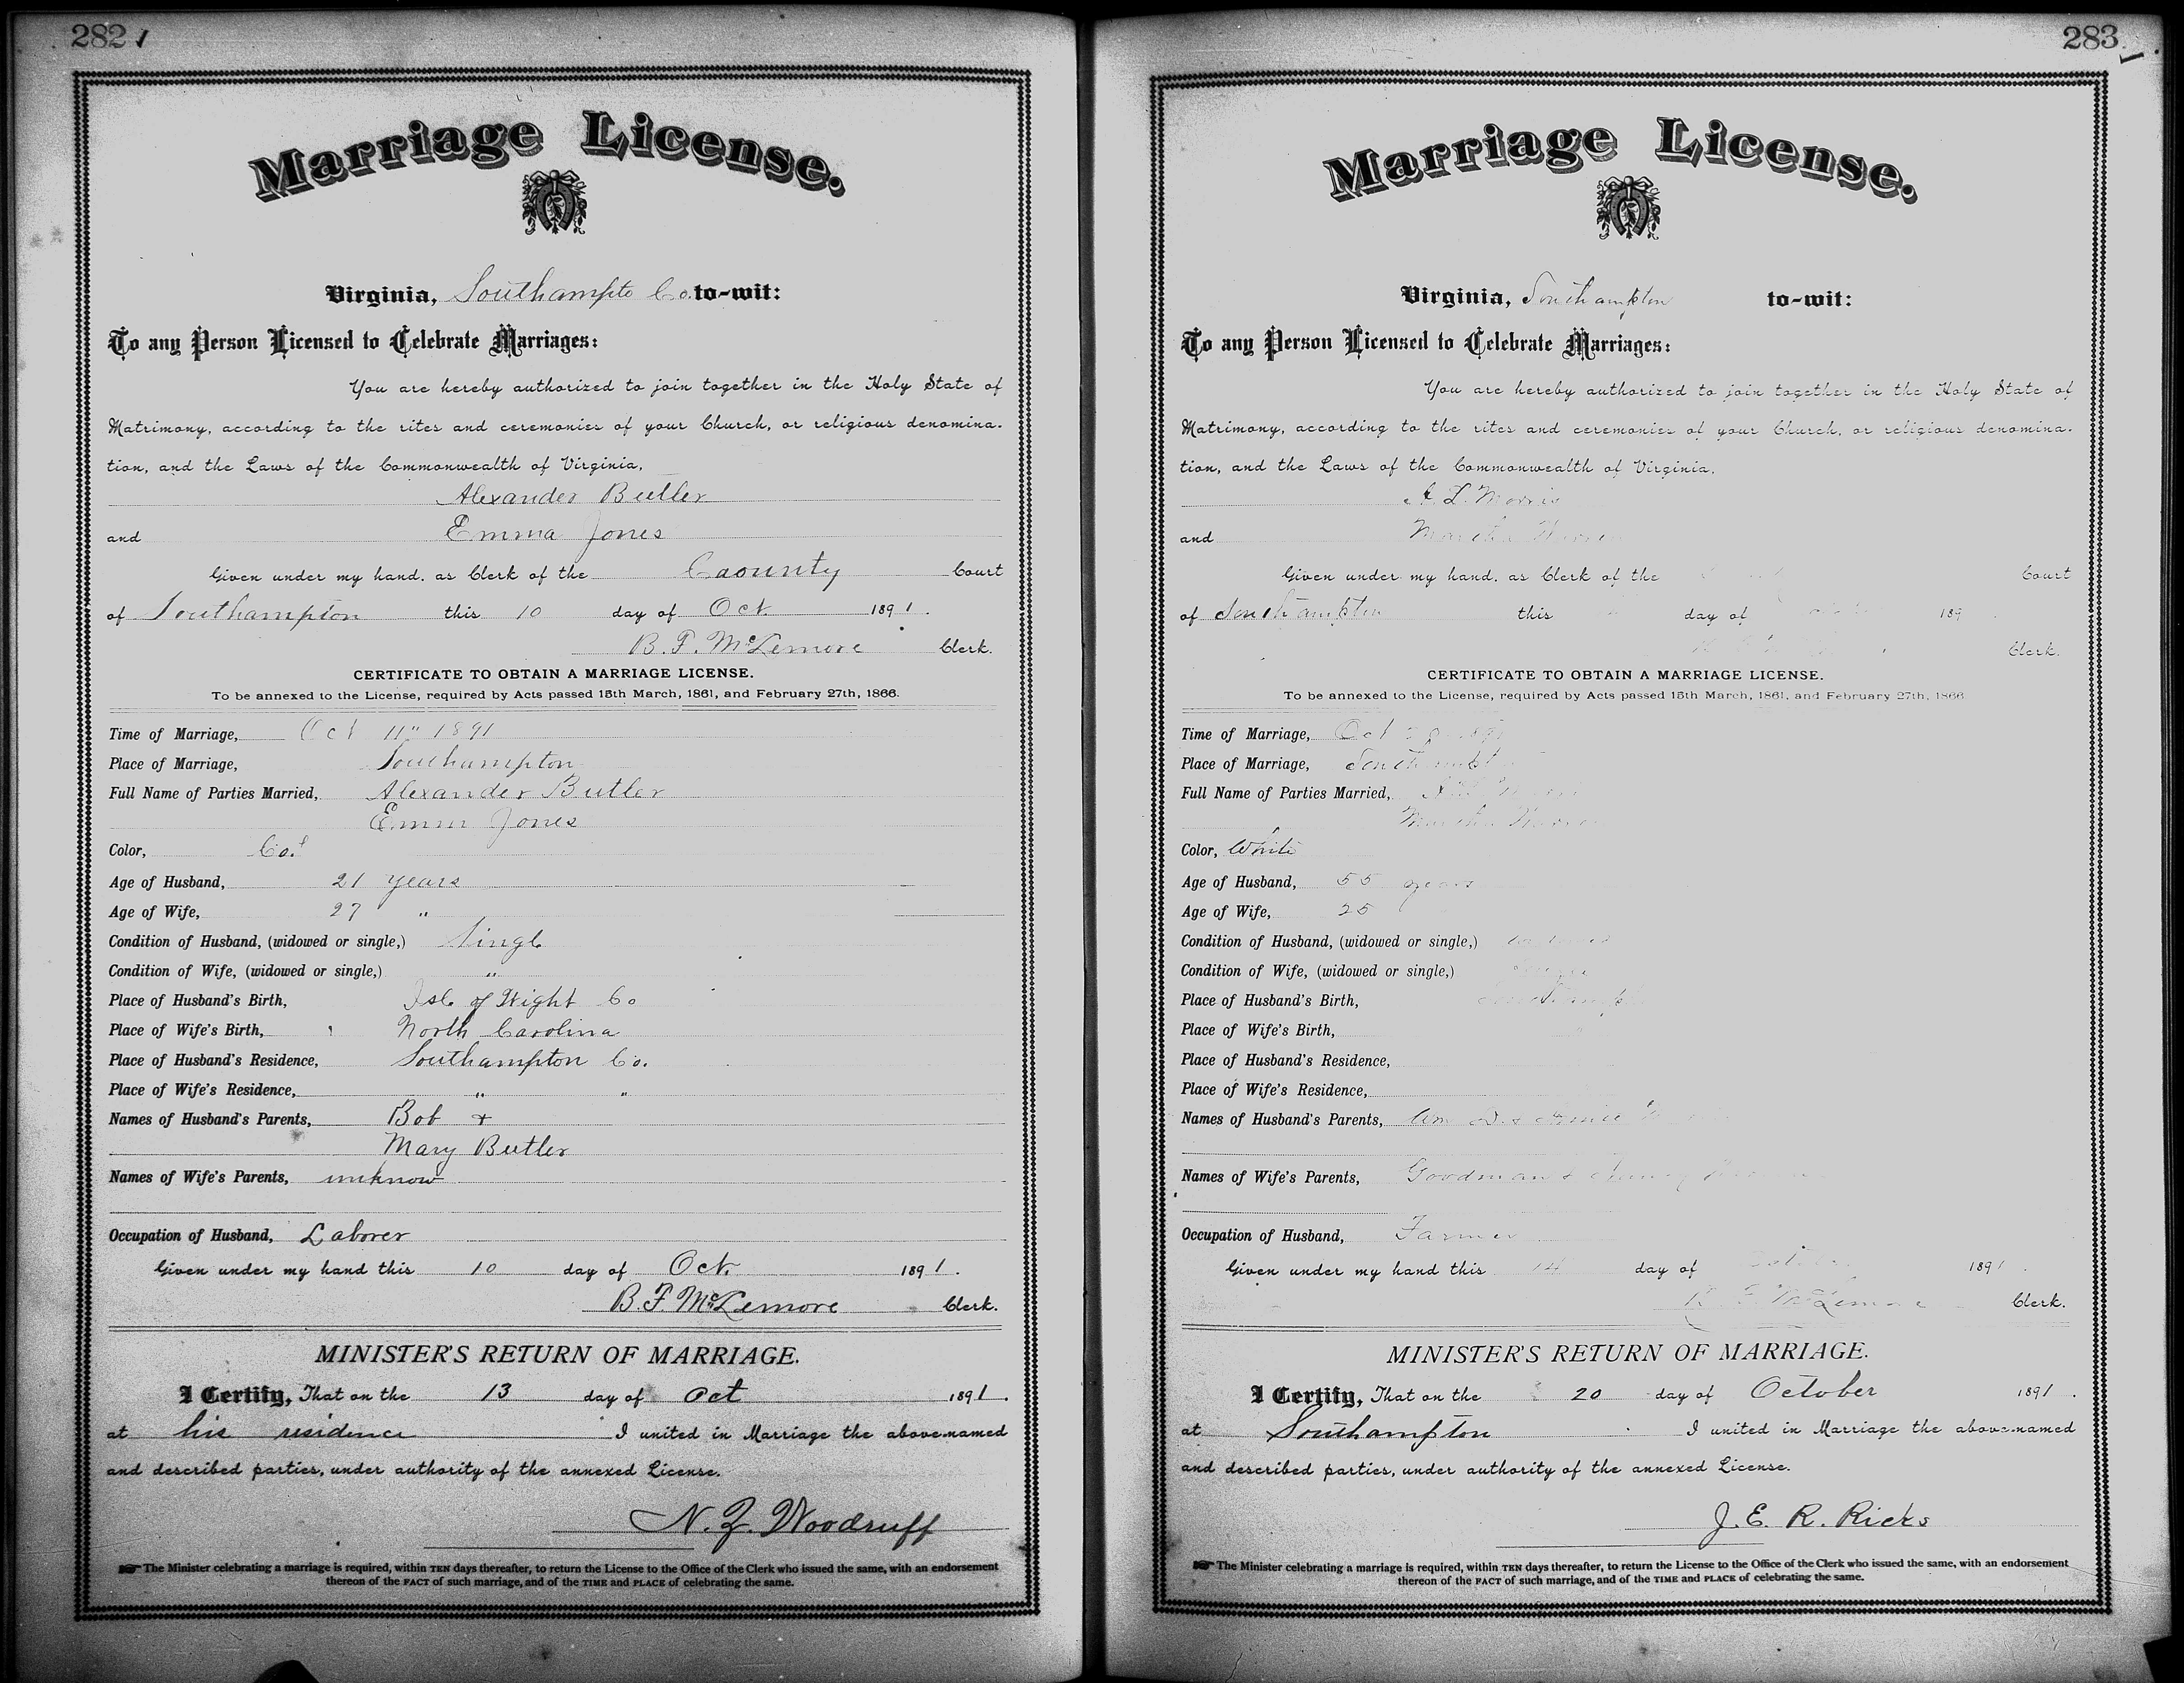 282
Marriage License.
Virginia, Southampto Co. to-wit:
To any Person Licensed to Celebrate Marriages:
You are hereby authorized to join together in the Holy State of
Matrimony, according to the rites and ceremonies of your Church, or religious denomina-
tion, and the Laws of the Commonwealth of Virginia,
Alexander Butler
and Emma Jones
Given under my hand, as Clerk of the Caounty Court
of Southampton this 10 day of Oct. 1891.
B. F. McLemore Clerk.
CERTIFICATE TO OBTAIN A MARRIAGE LICENSE.
To be annexed to the License, required by Acts passed 15th March, 1861, and February 27th, 1866.
Time of Marriage, Oct 11" 1891
Place of Marriage, Southampton
Full Name of Parties Married, Alexander Butler
Emma Jones
Color, Col
Age of Husband, 21 years
Age of Wife, 27 "
Condition of Husband, (widowed or single,) Single
Condition of Wife, (widowed or single,) "
Place of Husband's Birth, Isle of Wight Co
Place of Wife's Birth, North Carolina
Place of Husband's Residence, Southampton Co.
Place of Wife's Residence, " "
Names of Husband's Parents, Bob +
Mary Butler
Names of Wife's Parents, unknow
Occupation of Husband, Laborer
Given under my hand this 10 day of Oct. 1891.
B. F. McLemore Clerk.
MINISTER'S RETURN OF MARRIAGE.
I Certify, That on the 13 day of Oct 1891.
at his residence I united in Marriage the above-named
and described parties, under authority of the annexed License.
N. Z. Woodruff
The Minister celebrating a marriage is required, within TEN days thereafter, to return the License to the Office of the Clerk who issued the same, with an endorsement
thereon of the FACT of such marriage, and of the TIME and PLACE of celebrating the same.
283
Marriage License.
Virginia, Southampton to-wit:
To any Person Licensed to Celebrate Marriages:
You are hereby authorized to join together in the Holy State of
Matrimony, according to the rites and ceremonies of your Church, or religious denomina-
tion, and the Laws of the Commonwealth of Virginia,
L. Morris
and Martha
Given under my hand, as Clerk of the Court
of Southampton this day of 189
Clerk.
CERTIFICATE TO OBTAIN A MARRIAGE LICENSE.
To be annexed to the License, required by Acts passed 15th March, 1861, and February 27th, 1866
Time of Marriage, Oct 20 1891
Place of Marriage, Southampton
Full Name of Parties Married,
Martha
Color, White
Age of Husband, 55 years
Age of Wife, 25
Condition of Husband, (widowed or single,) widowed
Condition of Wife, (widowed or single,) Single
Place of Husband's Birth, Southampton
Place of Wife's Birth,
Place of Husband's Residence,
Place of Wife's Residence,
Names of Husband's Parents,
Names of Wife's Parents, Goodman +
Occupation of Husband, Farmer
Given under my hand this 14 day of October 1891.
B. F. McLemore Clerk.
MINISTER'S RETURN OF MARRIAGE.
I Certify, That on the 20 day of October 1891.
at Southampton I united in Marriage the above-named
and described parties, under authority of the annexed License.
J. E. R. Ricks
The Minister celebrating a marriage is required, within TEN days thereafter, to return the License to the Office of the Clerk who issued the same, with an endorsement
thereon of the FACT of such marriage, and of the TIME and PLACE of celebrating the same.